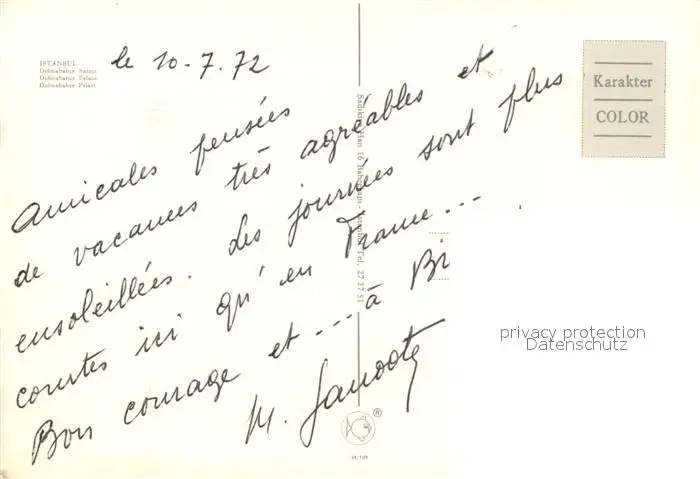 ISTANBUL
Dolmabahçe Sarayı
Dolmabahçe Palace
Dolmabahçe Palast
le 10-7.72
Amicales pensées
de vacances très agréables et
ensoleillées. Les journées sont plus
courtes ici qu'en France...
Bon courage et ... à Bi
M.
Karakter
COLOR
Tel. 27 37 51
privacy protection
Datenschutz
®